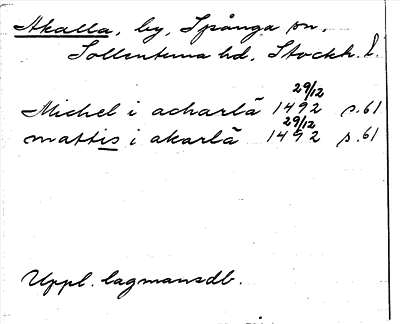 Akalla, by, Spånga sn,
Sollentuna hd, Stockh. l.
Michel i acharlā 29/12 1492 s. 61
mattis i akarlā 29/12 1492 s. 61
Uppl. lagmansdb.